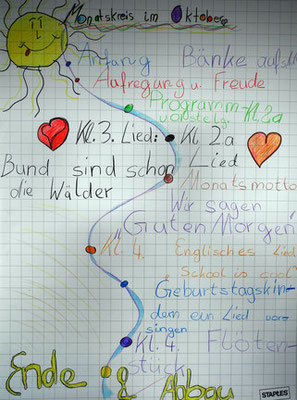 Monatskreis im Oktober
Anfang Bänke aufst
Aufregung u. Freude
Programm-
vorstellg. Kl. 2a
Kl. 3. Lied: Kl. 2a
Bund sind schon Lied
die Wälder
Monatsmotto
Wir sagen
„Guten Morgen"
Kl. 4. Englisches Lied
„School is cool"
Geburtstagskin-
dern ein Lied vor-
singen
Kl. 4. Flöten-
stück
Ende & Abbau
STAPLES